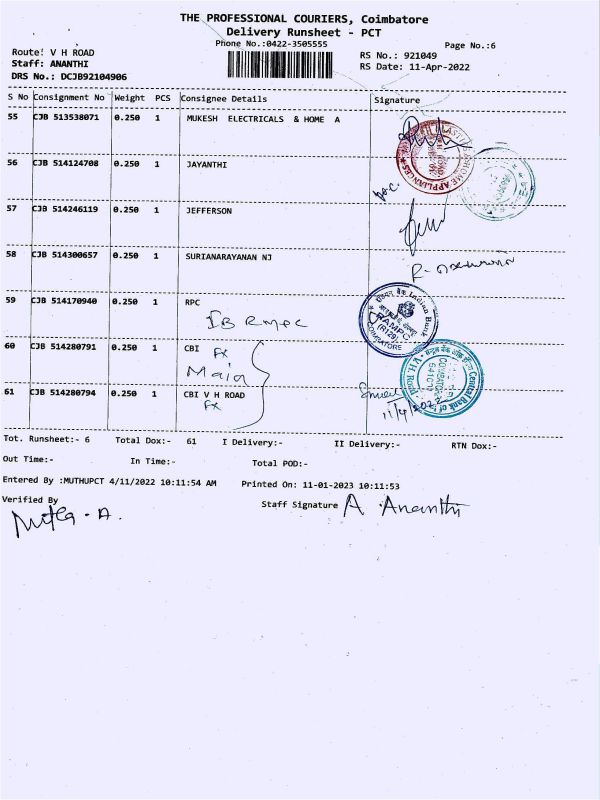 THE PROFESSIONAL COURIERS, Coimbatore
Delivery Runsheet - PCT
Phone No.:0422-3505555
Page No.:6
Route: V H ROAD
RS No.: 921049
Staff: ANANTHI
RS Date: 11-Apr-2022
DRS No.: DCJB92104906
S No Consignment No Weight PCS Consignee Details Signature
55 CJB 513538071 0.250 1 MUKESH ELECTRICALS & HOME A
HOME APPLIANCES
56 CJB 514124708 0.250 1 JAYANTHI
57 CJB 514246119 0.250 1 JEFFERSON
58 CJB 514300657 0.250 1 SURIANARAYANAN NJ
59 CJB 514170940 0.250 1 RPC
IB Rmpc
इंडियन बैंक Indian Bank
RAMPC
COIMBATORE
60 CJB 514280791 0.250 1 CBI
Main
Central Bank of
V.H. Road
COIMBATORE
61 CJB 514280794 0.250 1 CBI V H ROAD
11/4/2022
Tot. Runsheet:- 6 Total Dox:- 61 I Delivery:- II Delivery:- RTN Dox:-
Out Time:- In Time:- Total POD:-
Entered By :MUTHUPCT 4/11/2022 10:11:54 AM Printed On: 11-01-2023 10:11:53
Verified By Staff Signature A. Ananthi